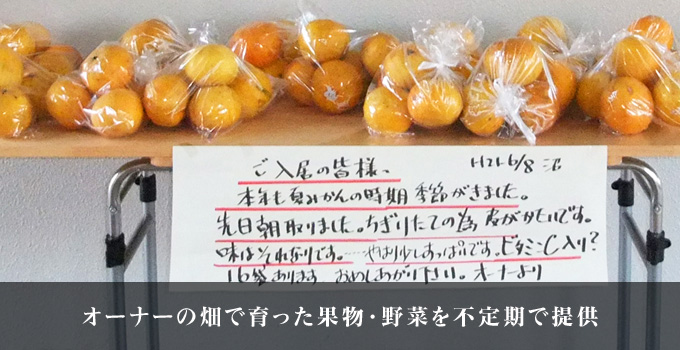 ご入居の皆様、 H21.6/8
本年も夏みかんの時期 季節がきました。
先日朝取りました。ちぎりたての為 皮がかたいです。
味はそれなりです。…やはり少しすっぱいです。ビタミンC入り?
16袋あります おめしあがり下さい。オーナーより
オーナーの畑で育った果物・野菜を不定期で提供